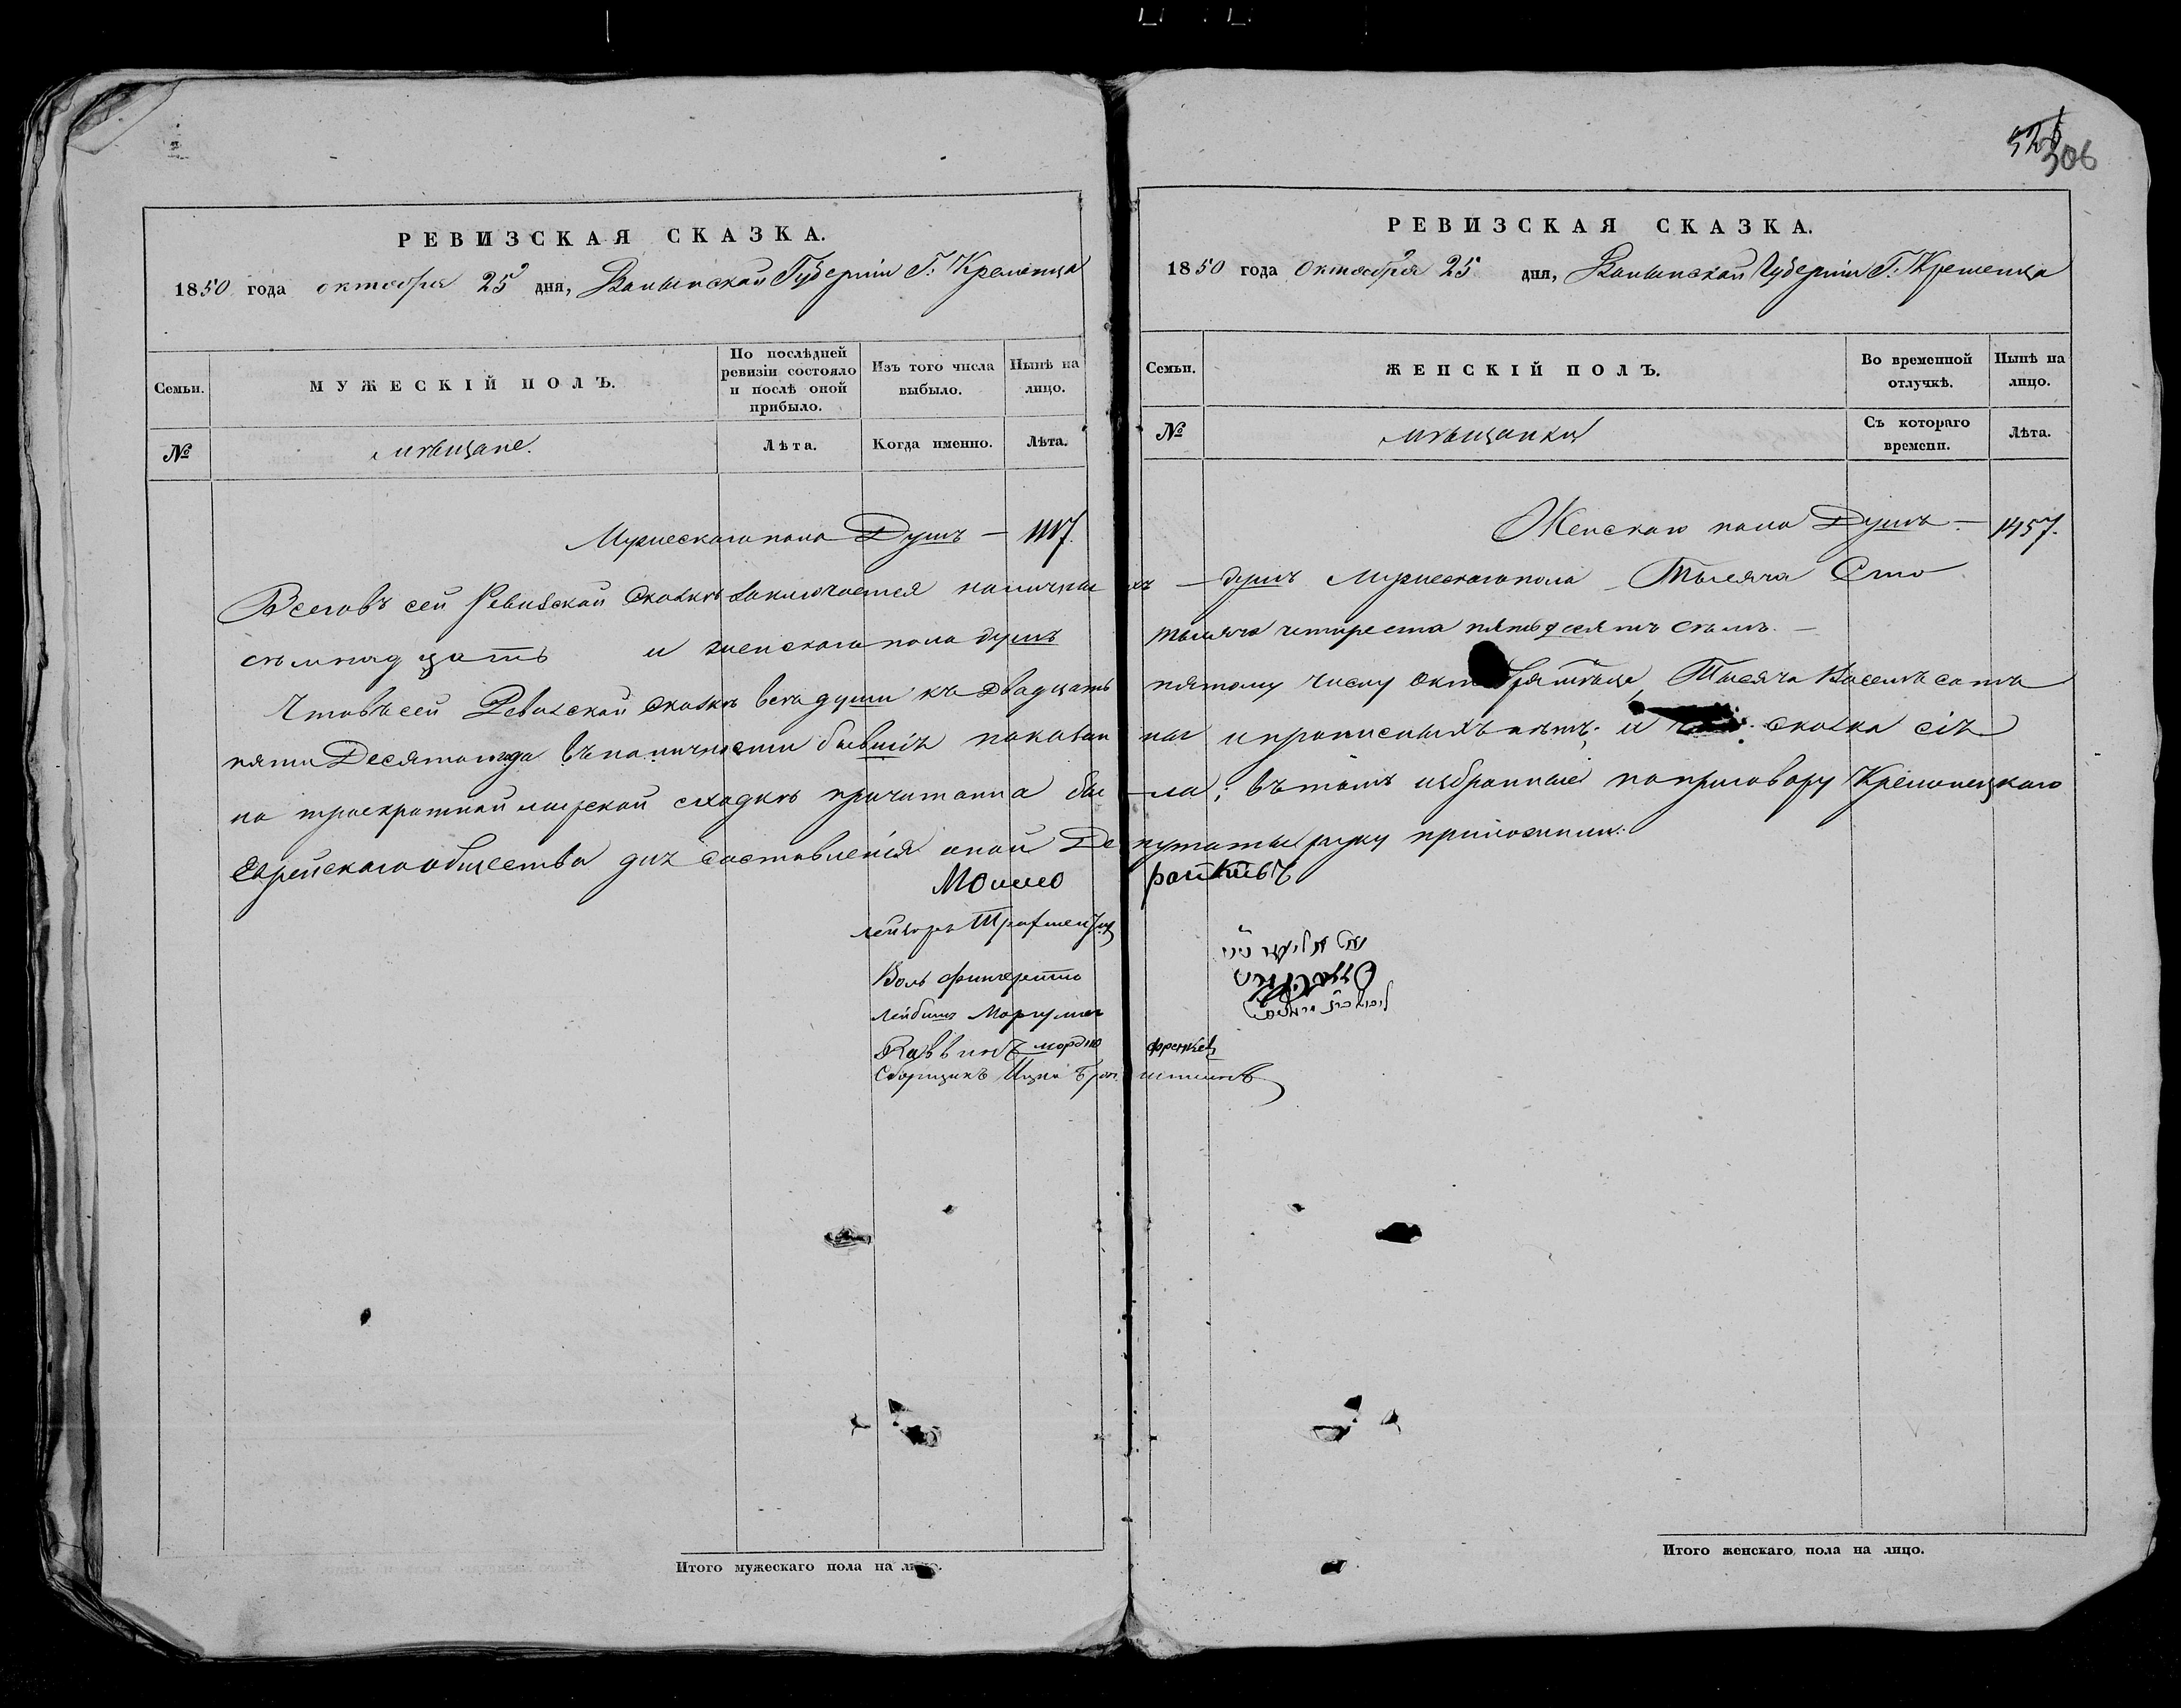 521
306
РЕВИЗСКАЯ СКАЗКА.
1850 года октября 25 дня, Волынской Губернiи Г: Кременца
Семьи.
МУЖЕСКIЙ ПОЛЪ.
По послѣдней ревизiи состояло и послѣ оной прибыло.
Изъ того числа выбыло.
Нынѣ на лицо.
№
мѣщане.
Лѣта.
Когда именно.
Лѣта.
РЕВИЗСКАЯ СКАЗКА.
1850 года Октября 25 дня, Волынской Губернiи Г: Кременца
Семьи.
ЖЕНСКIЙ ПОЛЪ.
Во временной отлучкѣ.
Нынѣ на лицо.
№
мѣщанки
Съ котораго времени.
Лѣта.
Мужескаго пола Душъ — 1117.
Женскаго пола Душъ — 1457.
Всего въ сей Ревизской Сказкѣ заключается наличныхъ — душъ Мужескаго пола — Тысяча Сто
съмнадцать и женскаго пола душъ тысяча четыреста пятьдесятъ съмъ. —
Что въ сей Ревизской Сказкѣ всѣ души къ Двадцать пятому числу октября мѣсяца Тысяча Восемъ сотъ
пяти Десятого года въ наличности бывшiя показаны и прописныхъ нѣтъ; и сказка сiя
на троекратной мирской сходкѣ прочитанна была; въ томъ избранные по приговору Кременецкаго
Еврейскаго общества для составленiя оной Депутаты руку приложили:
Мошко
Воль
Лейбишъ Моргулис
Раввинъ мордко френкел
Сборщикъ Ицко
Итого мужескаго пола на лицо.
Итого женскаго пола на лицо.